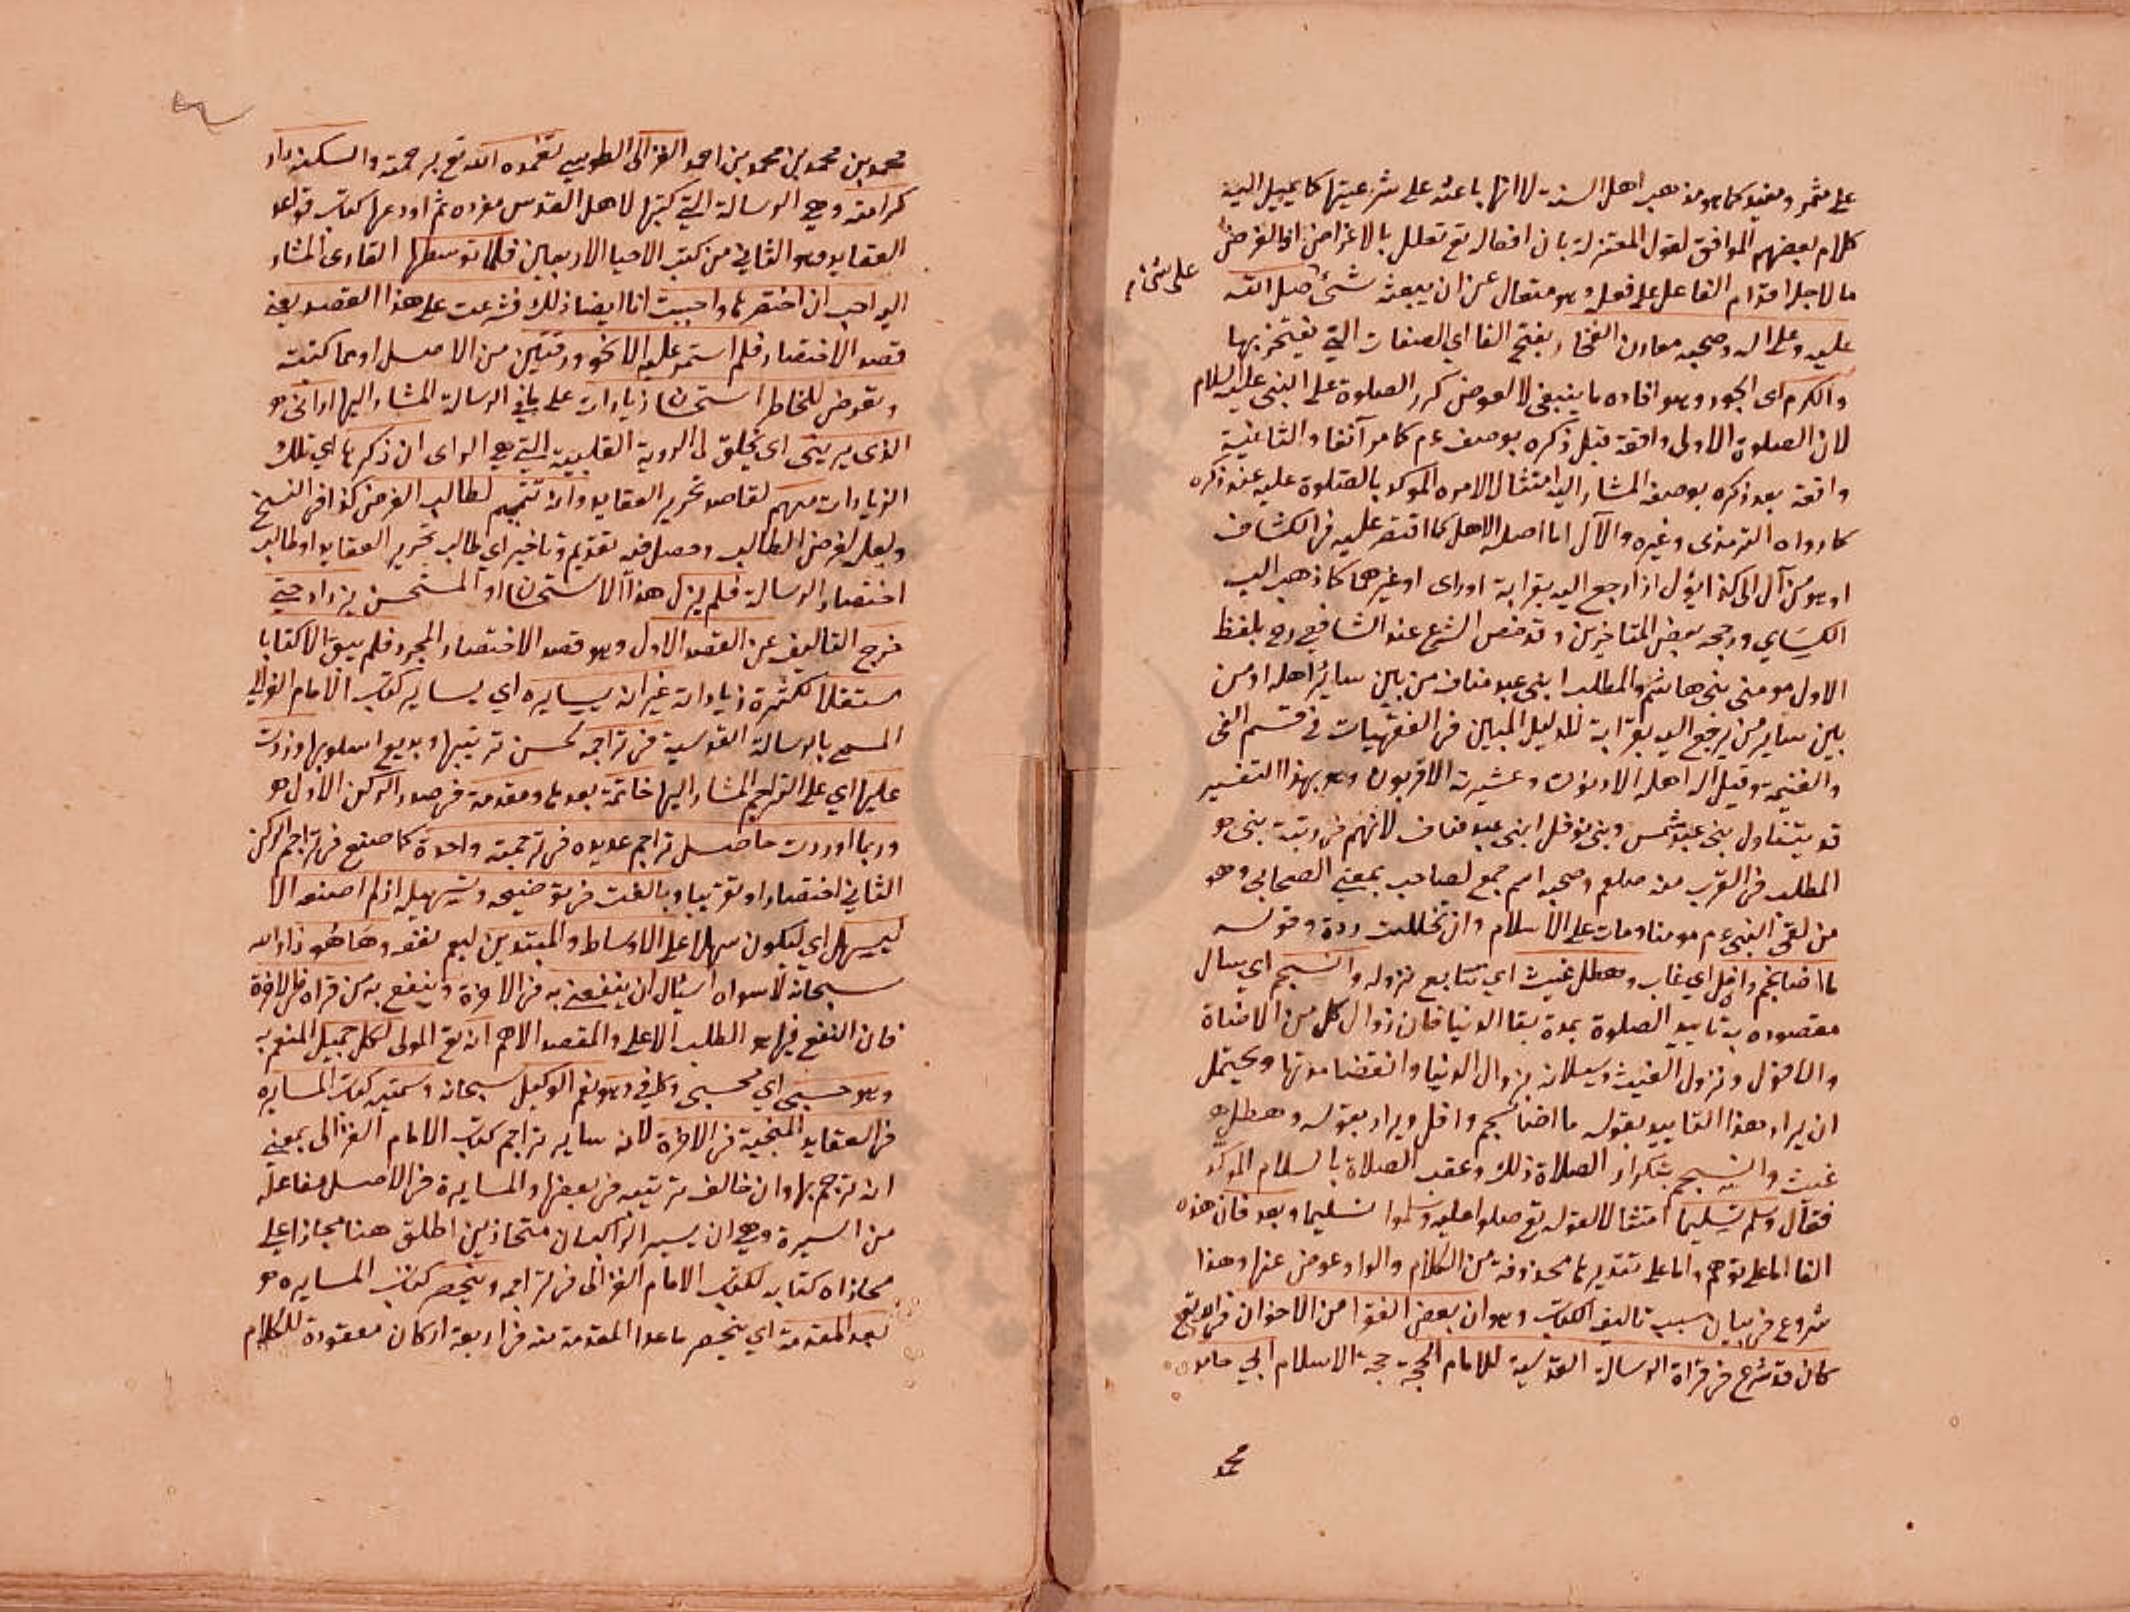 على ثمر ومفيد كما هو مذهب اهل السنة لا انها باعثة على شرعيتها كما يميل اليه
كلام بعضهم الموافق لقول المعتزلة بان افعاله تع تعلل بالاغراض اذ الغرض
ما لاجله اقدام الفاعل على فعله وهو متعال عن ان يبعثه شئ صلى الله
على شئ
عليه وعلى اله وصحبه معادن الفخار بفتح الفا اي الصفات التي يفتخر بها
والكرم اى الجود وهو افادة ما ينبغى لا لعوض كرر الصلوة على النبى عليه السلام
لان الصلوة الاولى واقعة قبل ذكره بوصف عم كما مر آنفا والثانية
واقعة بعد ذكره بوصفه المشار اليه امتثالا لامره الموكد بالصلوة عليه عند ذكره
كما رواه الترمذى وغيره والآل اما اصله الاهل كما اقتصر عليه فى الكشاف
او هو من آل الى كذا يؤل اذا رجع اليه بقرابة او راى او غيرهما كما ذهب اليه
الكسائي ورجحه بعض المتاخرين وقد خص الشرع عند الشافعي رح بلفظ
الاول مومنى بنى هاشم والمطلب ابنى عبد مناف من بين سائر اهله او من
بين سائر من يرجع اليه بقرابة للدليل المبين فى الفقهيات في قسم الفى
والغنيمة وقيل اله اهله الادنون وعشيرته الاقربون وهو بهذا التفسير
قد يتناول بنى عبد شمس وبنى نوفل ابنى عبد مناف لانهم فى رتبة بنى
المطلب فى القرب منه صلعم وصحبه اسم جمع لصاحب بمعنى الصحابي وهو
من لقى النبى عم مومنا ومات على الاسلام وان تخللت ردة وقوله
ما اضا نجم وافل اي غاب وهطل غيث اي تتابع نزوله وانسجم اي سال
مقصوده به تاييد الصلوة بمدة بقا الدنيا فان زوال كل من الاضاة
والافول ونزول الغيث وسيلانه بزوال الدنيا وانقضا مدتها ويحتمل
ان يراد هذا التاييد بقوله ما اضا نجم وافل ويراد بقوله وهطل
غيث وانسجم تكرار الصلاة ذلك وعقب الصلاة بالسلام الموكد
فقال وسلم تسليما امتثالا لقوله تع صلوا عليه وسلموا تسليما وبعد فان هذه
الفا اما على توهم واما على تقديرها محذوفة من الكلام والواو عوض عنها وهذا
شروع فى بيان سبب تاليف الكتاب وهو ان بعض الفقرا من الاخوان فى الله تع
كان قد شرع فى قراة الرسالة القدسية للامام الحجة حجة الاسلام ابي حامد
محمد
محمد بن محمد بن محمد بن احمد الغزالى الطوسي تغمده الله تع برحمته واسكنه دار
كرامته وهي الرسالة التي كتبها لاهل القدس مفردة ثم اودعها كتاب قواعد
العقايد وهو الثاني من كتب الاحيا الاربعين فلما توسطها القارى المشار
اليه احب ان اختصرها واحببت انا ايضا ذلك فشرعت على هذا القصد يعني
قصد الاختصار فلم استمر عليه الا نحو ورقتين من الاصل او مما كتبت
وتعرض للخاطر استحسان زيادات على ما في الرسالة المشار اليها اراني
الذى يرينى اى يخلق لى الروية القلبية التي هي الراى ان ذكرها اي تلك
الزيادات مهم لقاصد تحرير العقايد وانه تتميم لطالب الغرض كذا فى النسخ
ولعله لغرض الطالب وحصل فيه تقديم وتاخير اي طالب تحرير العقايد او طالب
اختصار الرسالة فلم يزل هذا الاستحسان او المستحسن يزداد حتى
خرج التاليف عن القصد الاول وهو قصد الاختصار المجرد فلم يبق الا كتابا
مستقلا لكثرة زياداته غير انه يسايره اي يساير كتاب الامام الغزالي
المسمى بالرسالة القدسية فى تراجمه لحسن ترتيبها وبديع اسلوبها وزدت
عليها اي على التراجم المشار اليها خاتمة بعدها ومقدمة فى صدر الركن الاول
وربما اوردت حاصل تراجم عديدة فى ترجمة واحدة كما صنع فى تراجم الركن
الثاني اختصارا وتقريبا وبالغت فى توضيحه وتسهيله اذ لم اصنعه الا
ليسهل اي ليكون سهلا على الاوساط والمبتدين ليعم نفعه وها هو ذا والله
سبحانه لا سواه اسئال ان ينفعنى به فى الاخرة وينفع به من قراه فى الاخرة
فان النفع فيها هو المطلب الاعلى والمقصد الاهم انه تع المولى لكل جميل المنعم به
وهو حسبى اي محسبى وكافى وهو نعم الوكيل سبحانه وسميته كتاب المسايره
فى العقايد المنجية فى الاخرة لانه ساير تراجم كتاب الامام الغزالى بمعنى
انه ترجم بها وان خالف ترتيبه فى بعضها والمسايرة فى الاصل مفاعلة
من السيرة وهي ان يسير الراكبان متحاذيين اطلق هنا مجازا على
محاذاة كتابه لكتاب الامام الغزالى فى تراجمه وينحصر كتاب المسايره
بعد المقدمة اي ينحصر ما عدا المقدمة منه فى اربعة اركان معقودة للكلام